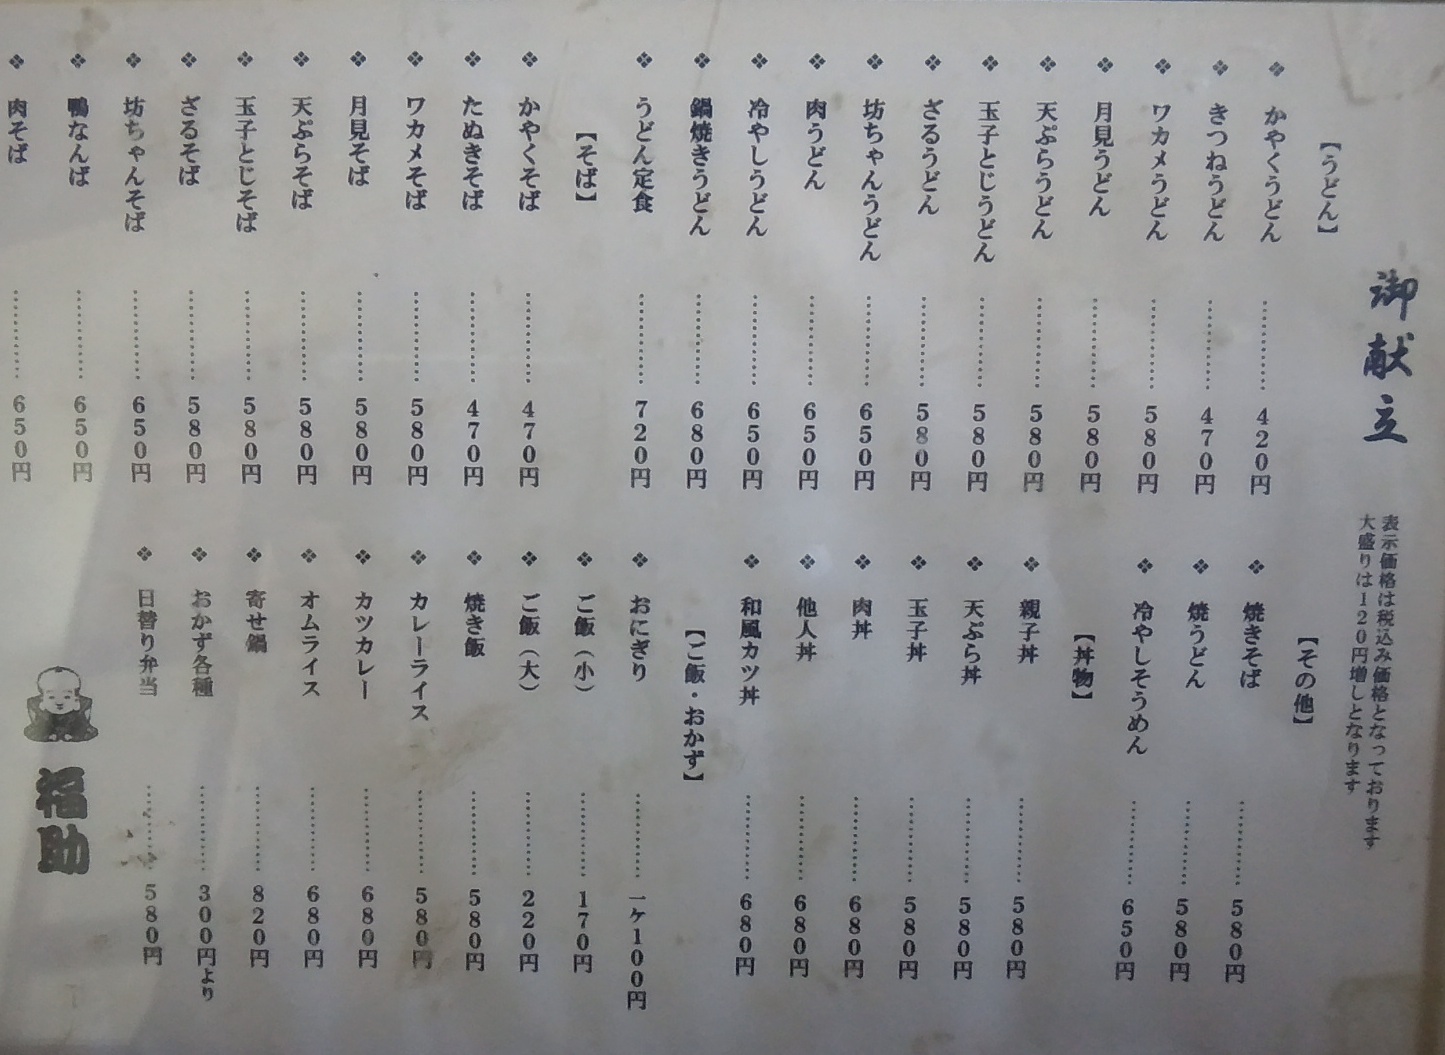 御献立
表示価格は税込み価格となっております
大盛りは120円増しとなります
【うどん】
❖ かやくうどん ………… 420円
❖ きつねうどん ………… 470円
❖ ワカメうどん ………… 580円
❖ 月見うどん ………… 580円
❖ 天ぷらうどん ………… 580円
❖ 玉子とじうどん ………… 580円
❖ ざるうどん ………… 580円
❖ 坊ちゃんうどん ………… 650円
❖ 肉うどん ………… 650円
❖ 冷やしうどん ………… 650円
❖ 鍋焼きうどん ………… 680円
❖ うどん定食 ………… 720円
【そば】
❖ かやくそば ………… 470円
❖ たぬきそば ………… 470円
❖ ワカメそば ………… 580円
❖ 月見そば ………… 580円
❖ 天ぷらそば ………… 580円
❖ 玉子とじそば ………… 580円
❖ ざるそば ………… 580円
❖ 坊ちゃんそば ………… 650円
❖ 鴨なんば ………… 650円
❖ 肉そば ………… 650円
【その他】
❖ 焼きそば ………… 580円
❖ 焼うどん ………… 580円
❖ 冷やしそうめん ………… 650円
【丼物】
❖ 親子丼 ………… 580円
❖ 天ぷら丼 ………… 580円
❖ 玉子丼 ………… 580円
❖ 肉丼 ………… 680円
❖ 他人丼 ………… 680円
❖ 和風カツ丼 ………… 680円
【ご飯・おかず】
❖ おにぎり ………… 一ケ100円
❖ ご飯（小） ………… 170円
❖ ご飯（大） ………… 220円
❖ 焼き飯 ………… 580円
❖ カレーライス ………… 580円
❖ カツカレー ………… 680円
❖ オムライス ………… 680円
❖ 寄せ鍋 ………… 820円
❖ おかず各種 ………… 300円より
❖ 日替り弁当 ………… 580円
福助